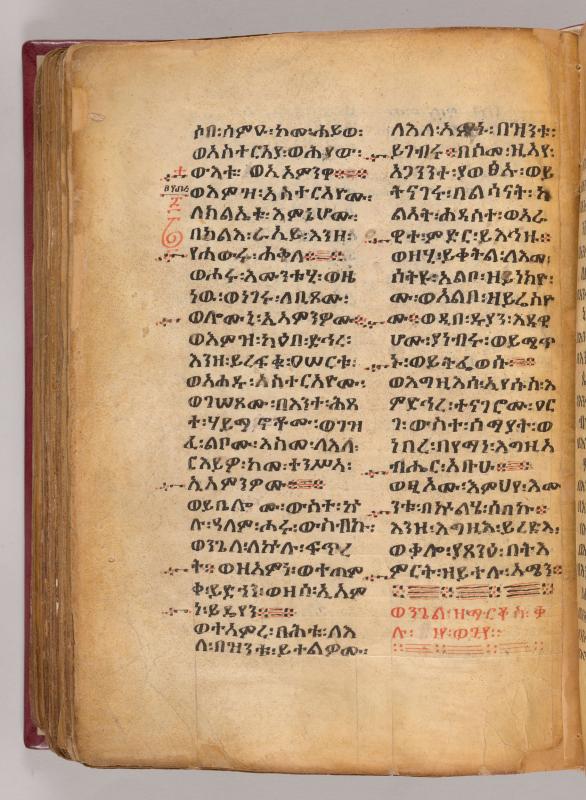 ሶበ፡ሰምዑ፡ከመ፡ሐይወ፡
ወአስተርአያ፡ወሕያው፡
ውእቱ፡ ወኢአምንዋ።
ወእምዝ፡አስተርአዮሙ፡
ለክልኤቱ፡እምኔሆሙ፡
በካልእ፡ራእይ፡እንዘ፡
የሐውሩ፡ሐቅለ።
ወሖሩ፡እሙንቱሂ፡ወዜ
ነዉ፡ወነገሩ፡ለቢጾሙ፡
ወሎሙኒ፡ኢአምንዎሙ።
ወእምዝ፡ካዕበ፡ድኅረ፡
እንዘ፡ይረፍቁ፡ዐሠርቱ፡
ወአሐዱ፡አስተርአዮሙ፡
ወገሠጾሙ፡በእንተ፡ሕጸ
ተ፡ሃይማኖቶሙ፡ወገዝ
ፈ፡ልቦሙ፡እስመ፡ለእለ፡
ርእይዎ፡ከመ፡ተንሥአ፡
ኢአምንዎሙ።
ወይቤሎሙ፡ውስተ፡ኵ
ሉ፡ዓለም፡ሑሩ፡ውስብኩ፡
ወንጌለ፡ለኵሉ፡ፍጥረ
ት።ወዘአምነ፡ወተጠም
ቀ፡ይድኅን፡ወዘሰ፡ኢአም
ነ፡ይዴየን።
ወተአምረ፡በሕቱ፡ለእ
ለ፡በዝንቱ፡ይተልዎሙ፡
ለእለ፡አምኑ፡በዝንቱ፡
ይገብሩ።በስመ፡ዚአየ፡
አጋንንተ፡ያወፅኡ፡ወይ
ትናገሩ፡በልሳናት፡ካ
ልኣት፡ሐዳስተ፡ወአራ
ዊተ፡ምድር፡ይእኅዙ።
ወዘሂ፡ይቀትል፡ለእመ፡
ሰትዩ፡አልቦ፡ዘይነክዮ
ሙ፡ወአልቦ፡ዘይሬስዮ
ሙ።ወዲበ፡ድዩን፡እደዊ
ሆሙ፡ያነብሩ፡ወይሜጥ
ኑ፡ወይትፌወሱ።
ወእግዚእሰ፡ኢየሱስ፡እ
ምድኅረ፡ተናገሮሙ፡ዐር
ገ፡ውስተ፡ሰማያት፡ወ
ነበረ፡በየማነ፡እግዚአ
ብሔር፡አቡሁ።
ወፂኦሙ፡እምህየ፡እሙ
ንቱ፡በኵልሄ፡ሰበኩ።
እንዘ፡እግዚእ፡ይረድእ፡
ወቅሎ፡ያጸንዕ፡በትእ
ምርት፡ዘይተሉ፡አሜን።
ወንጌል፡ዝማርቆስ፡ቃ
ሉ፡